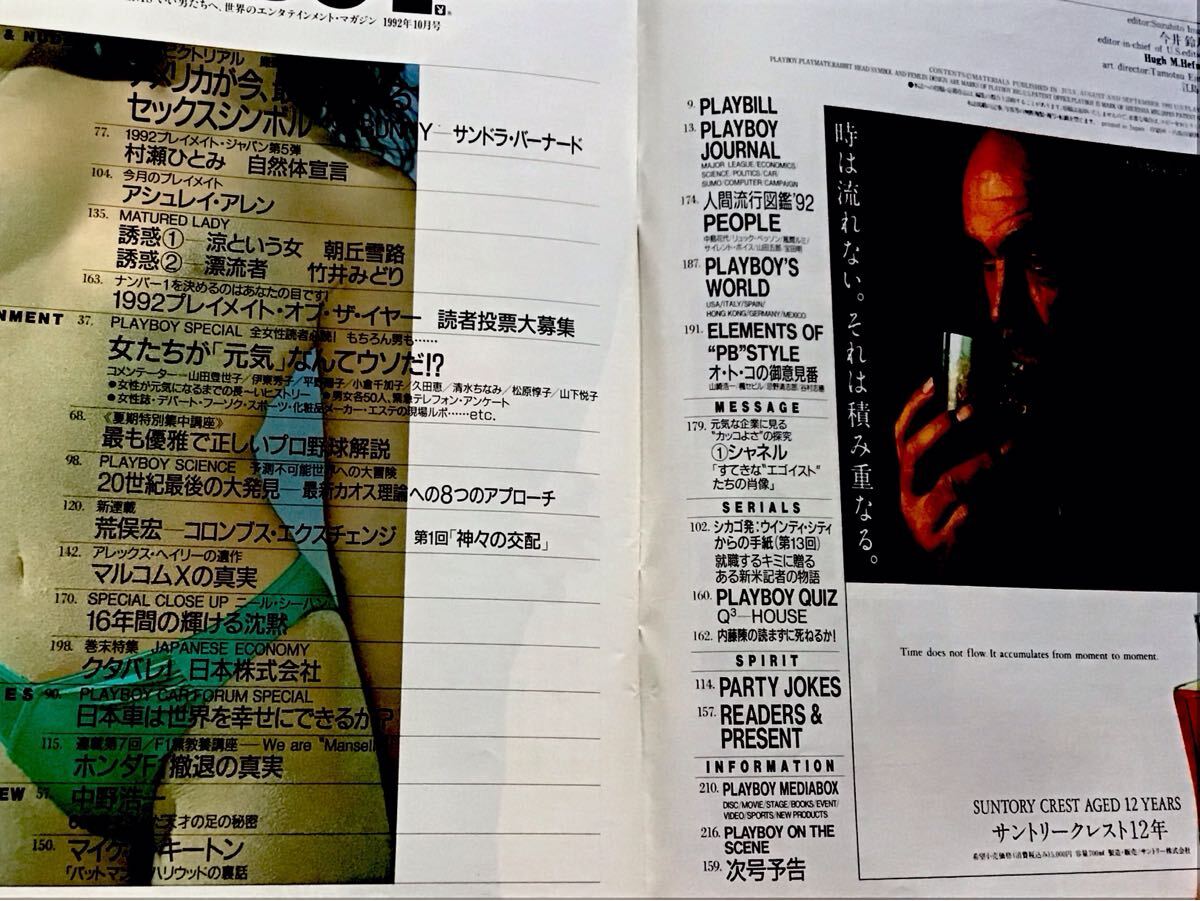 い男たちへ、世界のエンタテインメント・マガジン 1992年10月号
アメリカが今、
セックスシンボル
サンドラ・バーナード
77. 1992プレイメイト・ジャパン第5弾
村瀬ひとみ 自然体宣言
104. 今月のプレイメイト
アシュレイ・アレン
135. MATURED LADY
誘惑①—涼という女 朝丘雪路
誘惑②—漂流者 竹井みどり
163. ナンバー1を決めるのはあなたの目です!
1992プレイメイト・オブ・ザ・イヤー 読者投票大募集
NMENT 37. PLAYBOY SPECIAL 全女性読者必読! もちろん男も……
女たちが「元気」なんてウソだ!?
コメンテーター—山田登世子/伊東秀子/平野陽子/小倉千加子/久田恵/清水ちなみ/松原惇子/山下悦子
●女性が元気になるまでの長〜いヒストリー ●男女各50人、緊急テレフォン・アンケート
●女性誌・デパート・フーゾク・スポーツ・化粧品メーカー・エステの現場ルポ……etc.
68. 《夏期特別集中講座》
最も優雅で正しいプロ野球解説
98. PLAYBOY SCIENCE 予測不可能世界への大冒険
20世紀最後の大発見—最新カオス理論への8つのアプローチ
120. 新連載
荒俣宏—コロンブス・エクスチェンジ 第1回「神々の交配」
142. アレックス・ヘイリーの遺作
マルコムXの真実
170. SPECIAL CLOSE UP ニール・シーハン
16年間の輝ける沈黙
198. 巻末特集 JAPANESE ECONOMY
クタバレ! 日本株式会社
ES 90. PLAYBOY CAR FORUM SPECIAL
日本車は世界を幸せにできるか?
115. 連載第7回/F1無教養講座—We are "Mansell
ホンダF1撤退の真実
EW 57. 中野浩一
天才の足の秘密
150. マイケル・キートン
「バットマン ハリウッドの裏話
今井鈴
editor-in-chief of U.S.edit
Hugh M.Hefn
art director:Tamotsu E
9. PLAYBILL
13. PLAYBOY
JOURNAL
MAJOR LEAGUE/ECONOMICS
SCIENCE/POLITICS/CAR/
SUMO/COMPUTER/CAMPAIGN
174. 人間流行図鑑'92
PEOPLE
中島花代/リュック・ベッソン/風間ルミ/
サイレント・ボイス/山田五郎/宝田明
187. PLAYBOY'S
WORLD
USA/ITALY/SPAIN/
HONG KONG/GERMANY/MEXICO
191. ELEMENTS OF
"PB"STYLE
オ・ト・コの御意見番
MESSAGE
179. 元気な企業に見る
"カッコよさ"の探究
①シャネル
「すてきな"エゴイスト"
たちの肖像」
SERIALS
102. シカゴ発:ウインディ・シティ
からの手紙(第13回)
就職するキミに贈る
ある新米記者の物語
160. PLAYBOY QUIZ
Q³—HOUSE
162. 内藤陳の読まずに死ねるか!
SPIRIT
114. PARTY JOKES
157. READERS &
PRESENT
INFORMATION
210. PLAYBOY MEDIABOX
DISC/MOVIE/STAGE/BOOKS/EVENT/
VIDEO/SPORTS/NEW PRODUCTS
216. PLAYBOY ON THE
SCENE
159. 次号予告
時は流れない。それは積み重なる。
Time does not flow. It accumulates from moment to moment.
SUNTORY CREST AGED 12 YEARS
サントリークレスト12年
希望小売価格(消費税込み)5,000円 容量700ml 製造・販売/サントリー株式会社